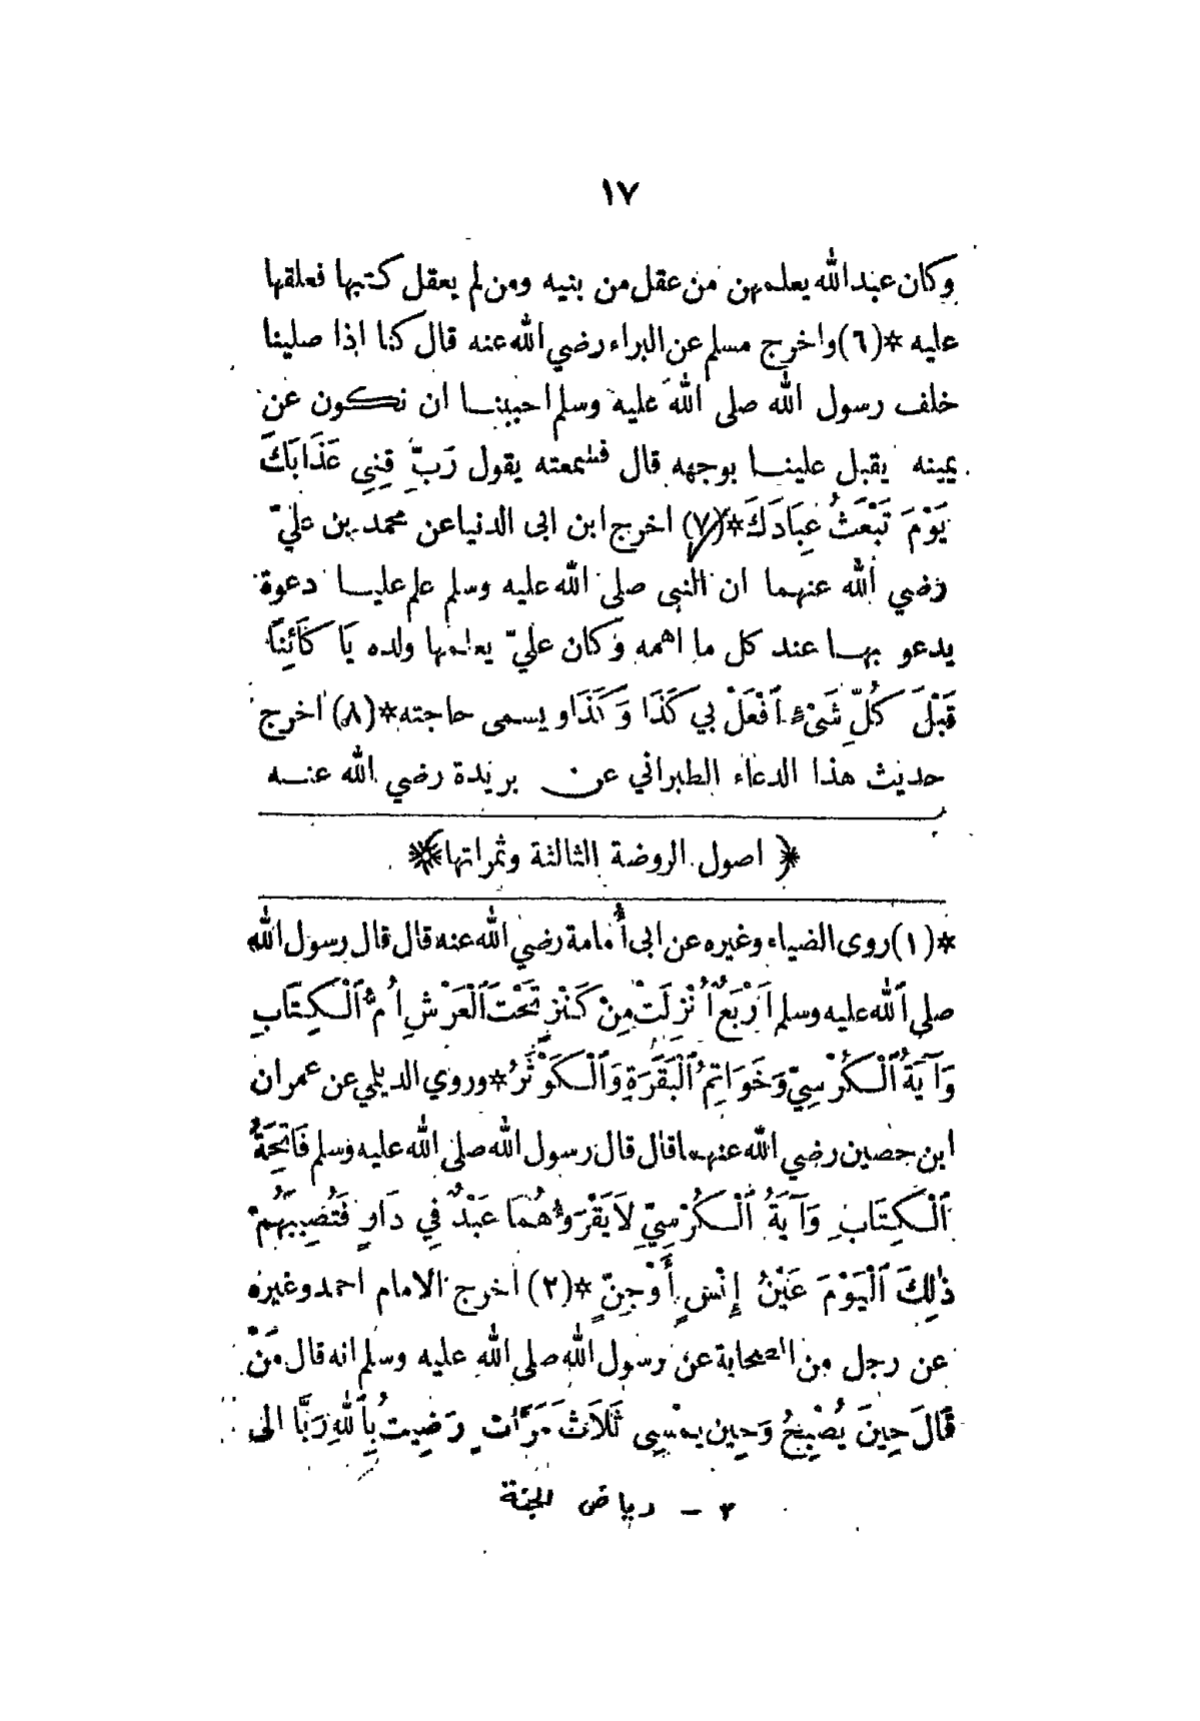 ١٧
وكان عبد الله يعلمهن من عقل من بنيه ومن لم يعقل كتبها فعلقها
عليه *(٦) واخرج مسلم عن البراء رضي الله عنه قال كنا اذا صلينا
خلف رسول الله صلى الله عليه وسلم احببنا ان نكون عن
يمينه يقبل علينا بوجهه قال فسمعته يقول رَبِّ قِنِي عَذَابَكَ
يَوْمَ تَبْعَثُ عِبَادَكَ*(٧) اخرج ابن ابى الدنيا عن محمد بن عليّ
رضي الله عنهما ان النبى صلى الله عليه وسلم علم عليا دعوة
يدعو بها عند كل ما اهمه وكان عليّ يعلمها ولده يَا كَائِنًا
قَبْلَ كُلِّ شَىْءٍ اَفْعَلْ بي كَذَا وَكَذَا ويسمى حاجته*(٨) اخرج
حديث هذا الدعاء الطبراني عن بريدة رضي الله عنه
﴿ اصول الروضة الثالثة وثمراتها ﴾
*(١) روى الضياء وغيره عن ابى أمامة رضي الله عنه قال قال رسول الله
صلى الله عليه وسلم اَرْبَعٌ اُنْزِلَتْ مِنْ كَنْزٍ تَحْتَ ٱلْعَرْشِ اُمُّ ٱلْكِتَابِ
وَآيَةُ ٱلْكُرْسِيِّ وَخَوَاتِمُ ٱلْبَقَرَةِ وَٱلْكَوْثَرُ*وروي الديلي عن عمران
ابن حصين رضي الله عنهما قال قال رسول الله صلى الله عليه وسلم فَاتِحَةُ
ٱلْكِتَابِ وَآيَةُ ٱلْكُرْسِيِّ لاَ يَقْرَؤُهُمَا عَبْدٌ فِي دَارٍ فَتُصِيبَهُمْ
ذٰلِكَ ٱلْيَوْمَ عَيْنُ إِنْسٍ أَوْ جِنٍّ *(٢) اخرج الامام احمد وغيره
عن رجل من الصحابة عن رسول الله صلى الله عليه وسلم انه قال مَنْ
قَالَ حِينَ يُصْبِحُ وَحِين يمْسِى ثَلاَثَ مَرَّاتٍ رَضِيتُ بِٱللهِ رَبًّا الى
٢ – رياض الجنة